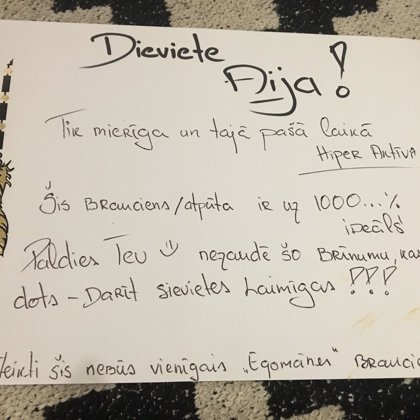 Dieviete
Aija!
Tik mierīga un tajā pašā laikā
Hiper Aktīva
Šis Brauciens/atpūta ir uz 1000...%
ideāls
Paldies Tev nezaudē šo Brīnumu, kas
dots - Darīt sievietes Laimīgas !!!
šis nebūs vienīgais „Egomānes"